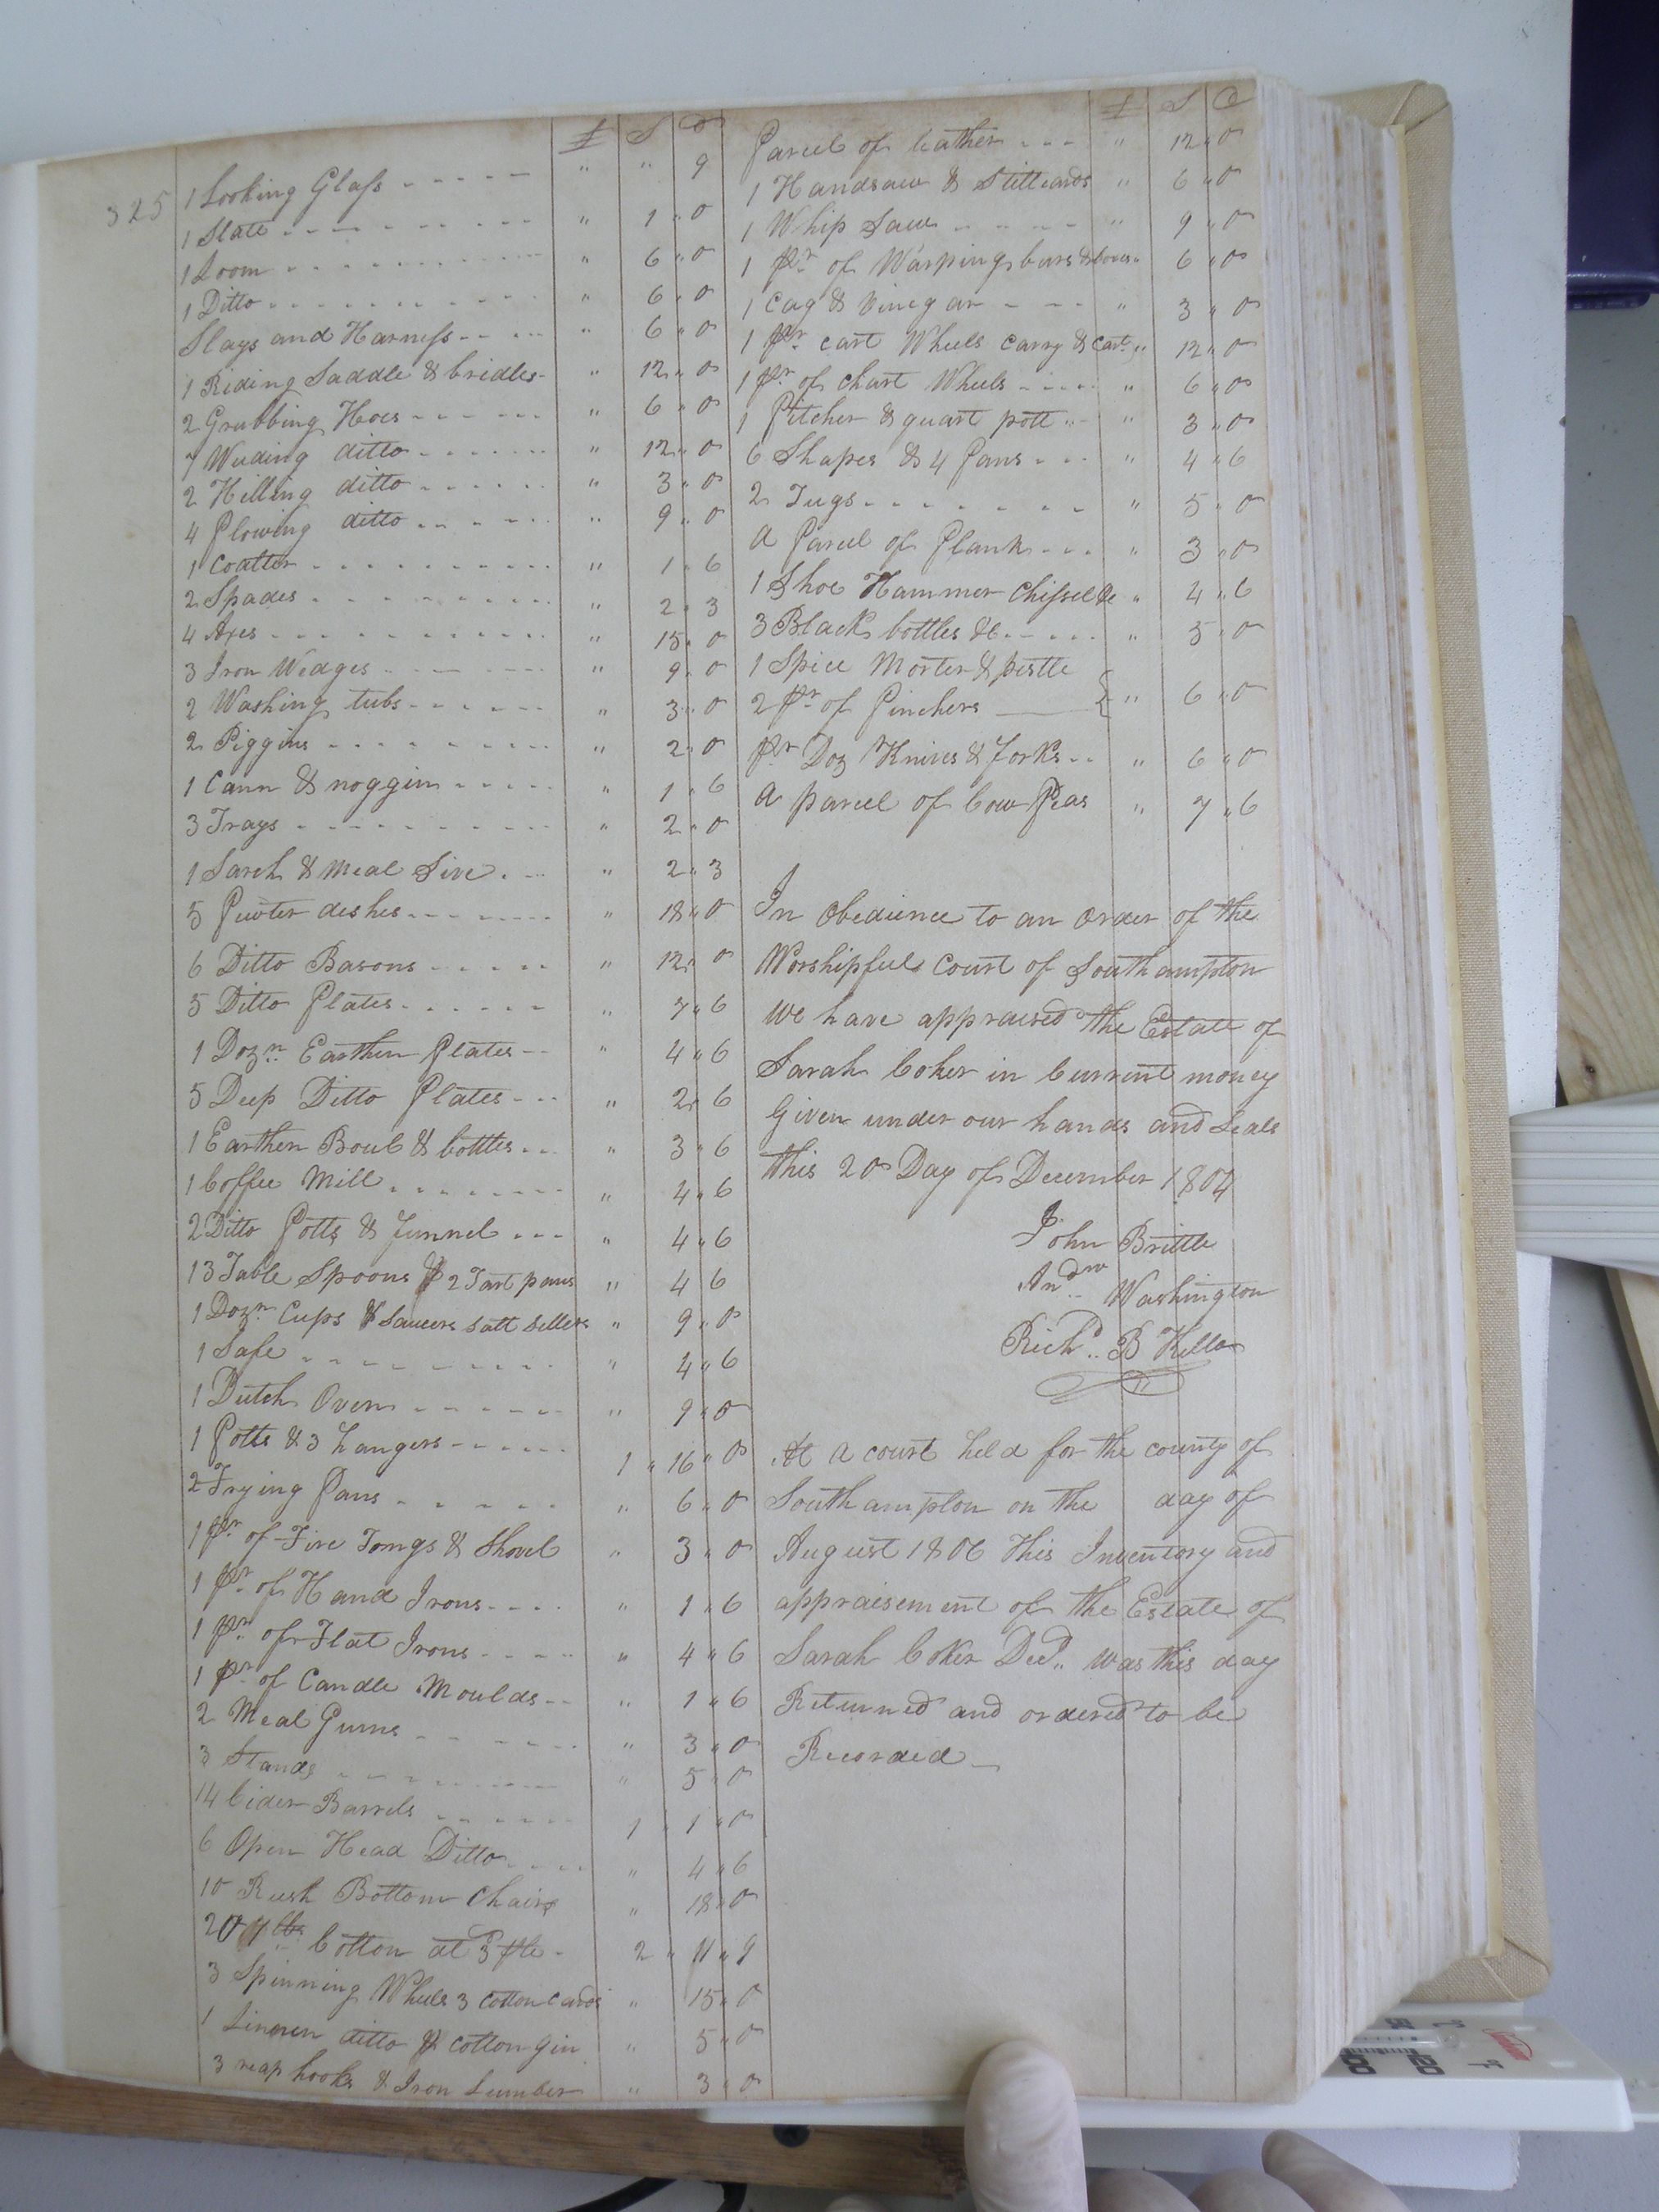 325
£ S D
1 Looking Glass - - - - - " " 9
1 Slate - - - - - - - - - " 1 " 0
1 Loom - - - - - - - - - " 6 " 0
1 Ditto - - - - - - - - - " 6 " 0
Slays and Harness - - - - " 6 " 0
1 Riding Saddle & bridles - " 12 " 0
2 Grubbing Hoes - - - - - " 6 " 0
7 Weeding ditto - - - - - " 12 " 0
2 Hilling ditto - - - - - " 3 " 0
4 Plowing ditto - - - - - " 9 " 0
1 Coalter - - - - - - - - " 1 " 6
2 Spades - - - - - - - - " 2 " 3
4 Axes - - - - - - - - - " 15 " 0
3 Iron Wedges - - - - - - " 9 " 0
2 Washing tubs - - - - - " 3 " 0
2 Piggins - - - - - - - - " 2 " 0
1 Cann & noggin - - - - - " 1 " 6
3 Trays - - - - - - - - - " 2 " 0
1 Sarch & Meal Sive - - - " 2 " 3
5 Pewter deshes - - - - - " 18 " 0
6 Ditto Basons - - - - - " 12 " 0
5 Ditto Plates - - - - - " 7 " 6
1 Dozn Earthen Plates - - " 4 " 6
5 Deep Ditto Plates - - - " 2 " 6
1 Earthen Boul & bottles - - - " 3 " 6
1 Coffee Mill - - - - - - " 4 " 6
2 Ditto Potts & funnel - - - " 4 " 6
13 Table Spoons & 2 Tart pans " 4 6
1 Dozn Cups & Saucers Salt Sellers " 9 " 0
1 Safe - - - - - - - - - " 4 " 6
1 Dutch Oven - - - - - - " 9 " 0
1 Potts & 3 hangers - - - - 1 " 16 " 0
2 Frying Pans - - - - - - " 6 " 0
1 pr of Fire Tongs & Shovel " 3 " 0
1 pr of Hand Irons - - - - " 1 " 6
1 pr of Flat Irons - - - - " 4 " 6
1 pr of Candle Moulds - - " 1 " 6
2 Meal Gums - - - - - - " 3 " 0
3 Stands - - - - - - - - " 5 " 0
14 Cider Barrels - - - - - 1 " 1 " 0
6 Open Head Ditto - - - - " 4 " 6
10 Rush Bottom Chairs " 18 " 0
20 lbs Cotton at 3 - 2 " 11 " 9
3 Spinning Wheels 3 cotton Cards " 15 " 0
1 Linnen ditto & cotton Gin " 5 " 0
3 reap hooks & Iron Lumber " 3 " 0
£ S D
Parcel of leather - - - " 12 " 0
1 Handsaw & Stilleards " 6 " 0
1 Whip Saw - - - - - " 9 " 0
1 pr of Warping bars & boxes " 6 " 0
1 Cag & Vinegar - - - - " 3 " 0
1 pr cart Wheels Carry & Cart " 12 " 0
1 pr of chart Wheels - - - - " 6 " 0
1 Pitcher & quart pott - - " 3 " 0
6 Shapes & 4 Pans - - - " 4 " 6
2 Jugs - - - - - - - " 5 " 0
a Parcel of Plank - - - " 3 " 0
1 Shoe Hammer Chissel &c " 4 " 6
3 Black bottles &c - - - - " 5 " 0
1 Spice Morter & pestle
2 pr of Pinchers } " 6 " 0
pr Doz Knives & Forks - - " 6 " 0
a parcel of Cow Peas " 7 " 6
In Obedience to an Order of the
Worshipfull Court of Southampton
we have appraised the Estate of
Sarah Coker in Current money
Given under our hands and Seals
this 20 Day of December 1804
John Brittle
Andw Washington
Richd B Kello
At a court held for the county of
Southampton on the day of
August 1806 This Inventory and
appraisement of the Estate of
Sarah Coker Decd. was this day
Returned and ordered to be
Recorded